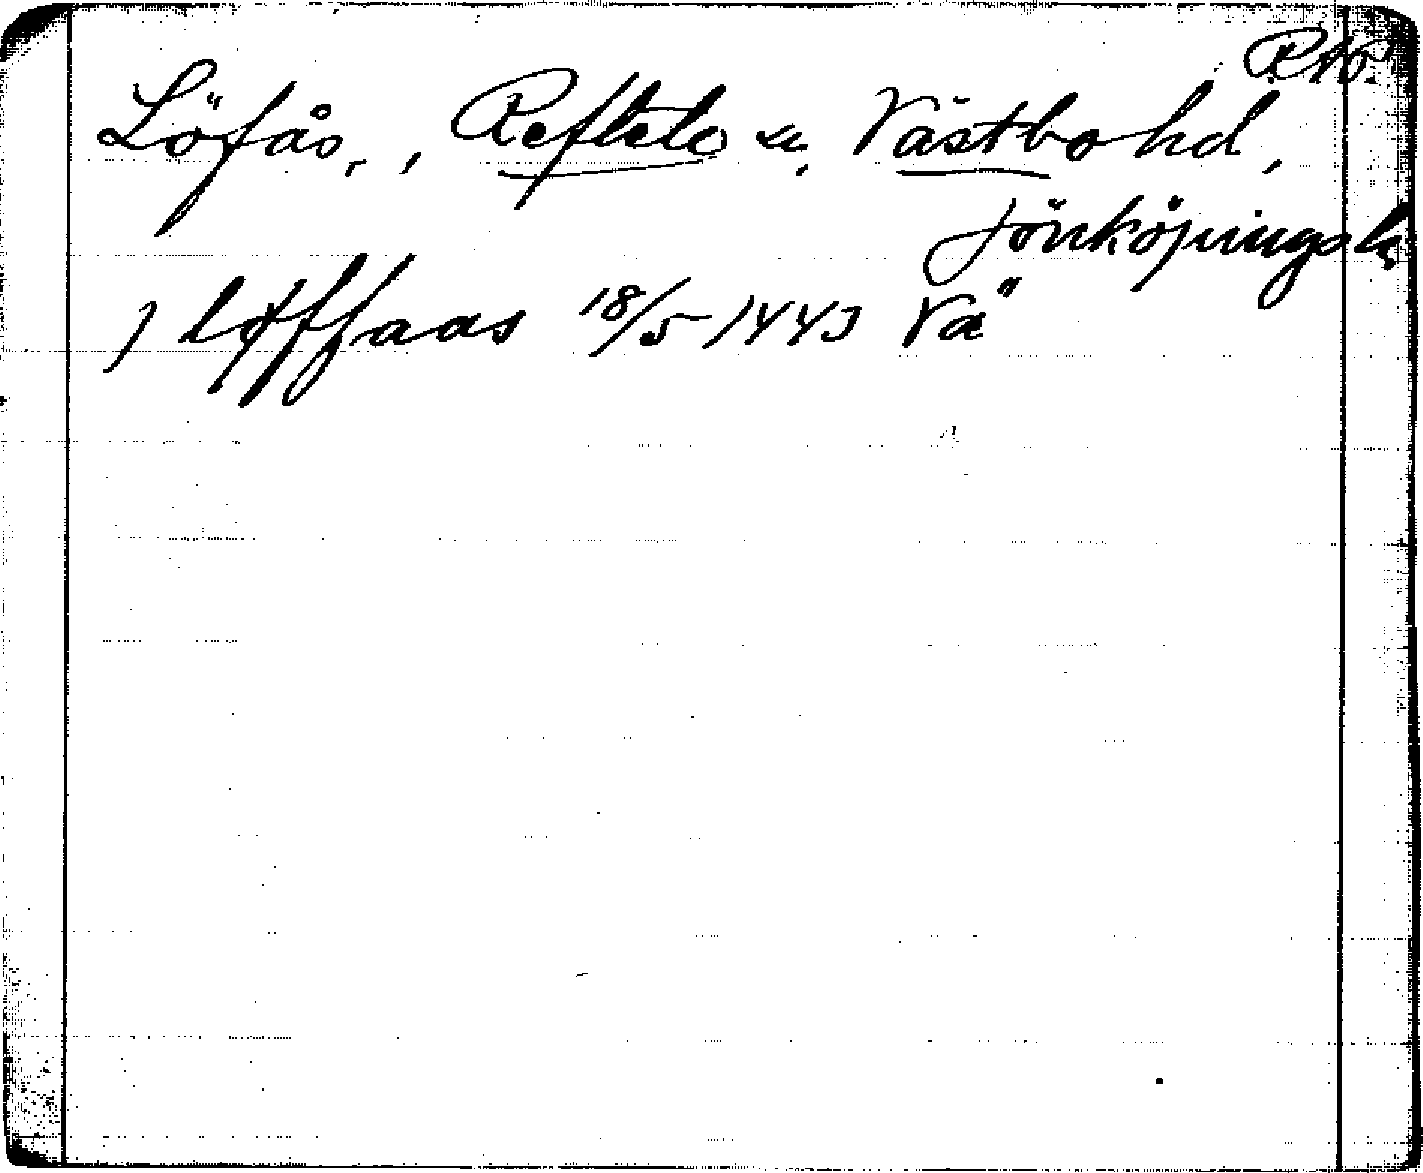 RAP.
Löfås, , Reftele sn, Västbo hd,
Jönköpings l.
j løffaas 18/5 1443 Vä